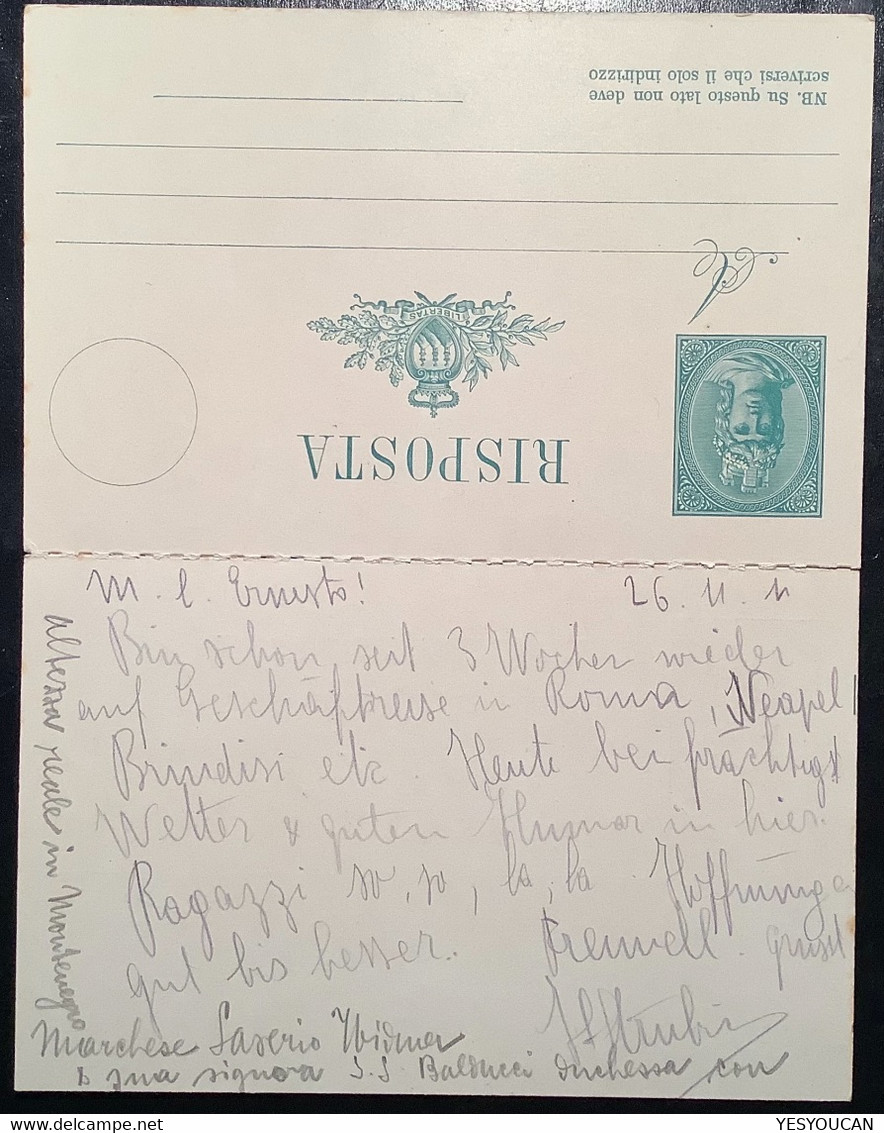 NB. Su questo lato non deve
scriversi che il solo indirizzo
A
LIBERTAS
RISPOSTA
M. l. Ernesto! 26. 11. 11
Bin schon seit 3 Wochen wieder
auf Geschäftsreise in Roma, Neapel
Brindisi etc. Heute bei prächtigst
Wetter & guten Humor in hier.
Ragazzi so, so, la, la. Hoffnungen
gut bis besser. Freundl. grüsst
altezza reale in Montenegro
Marchese Saverio Widmer
e sua signora S. S. Balducci duchessa con
YESYOUCAN